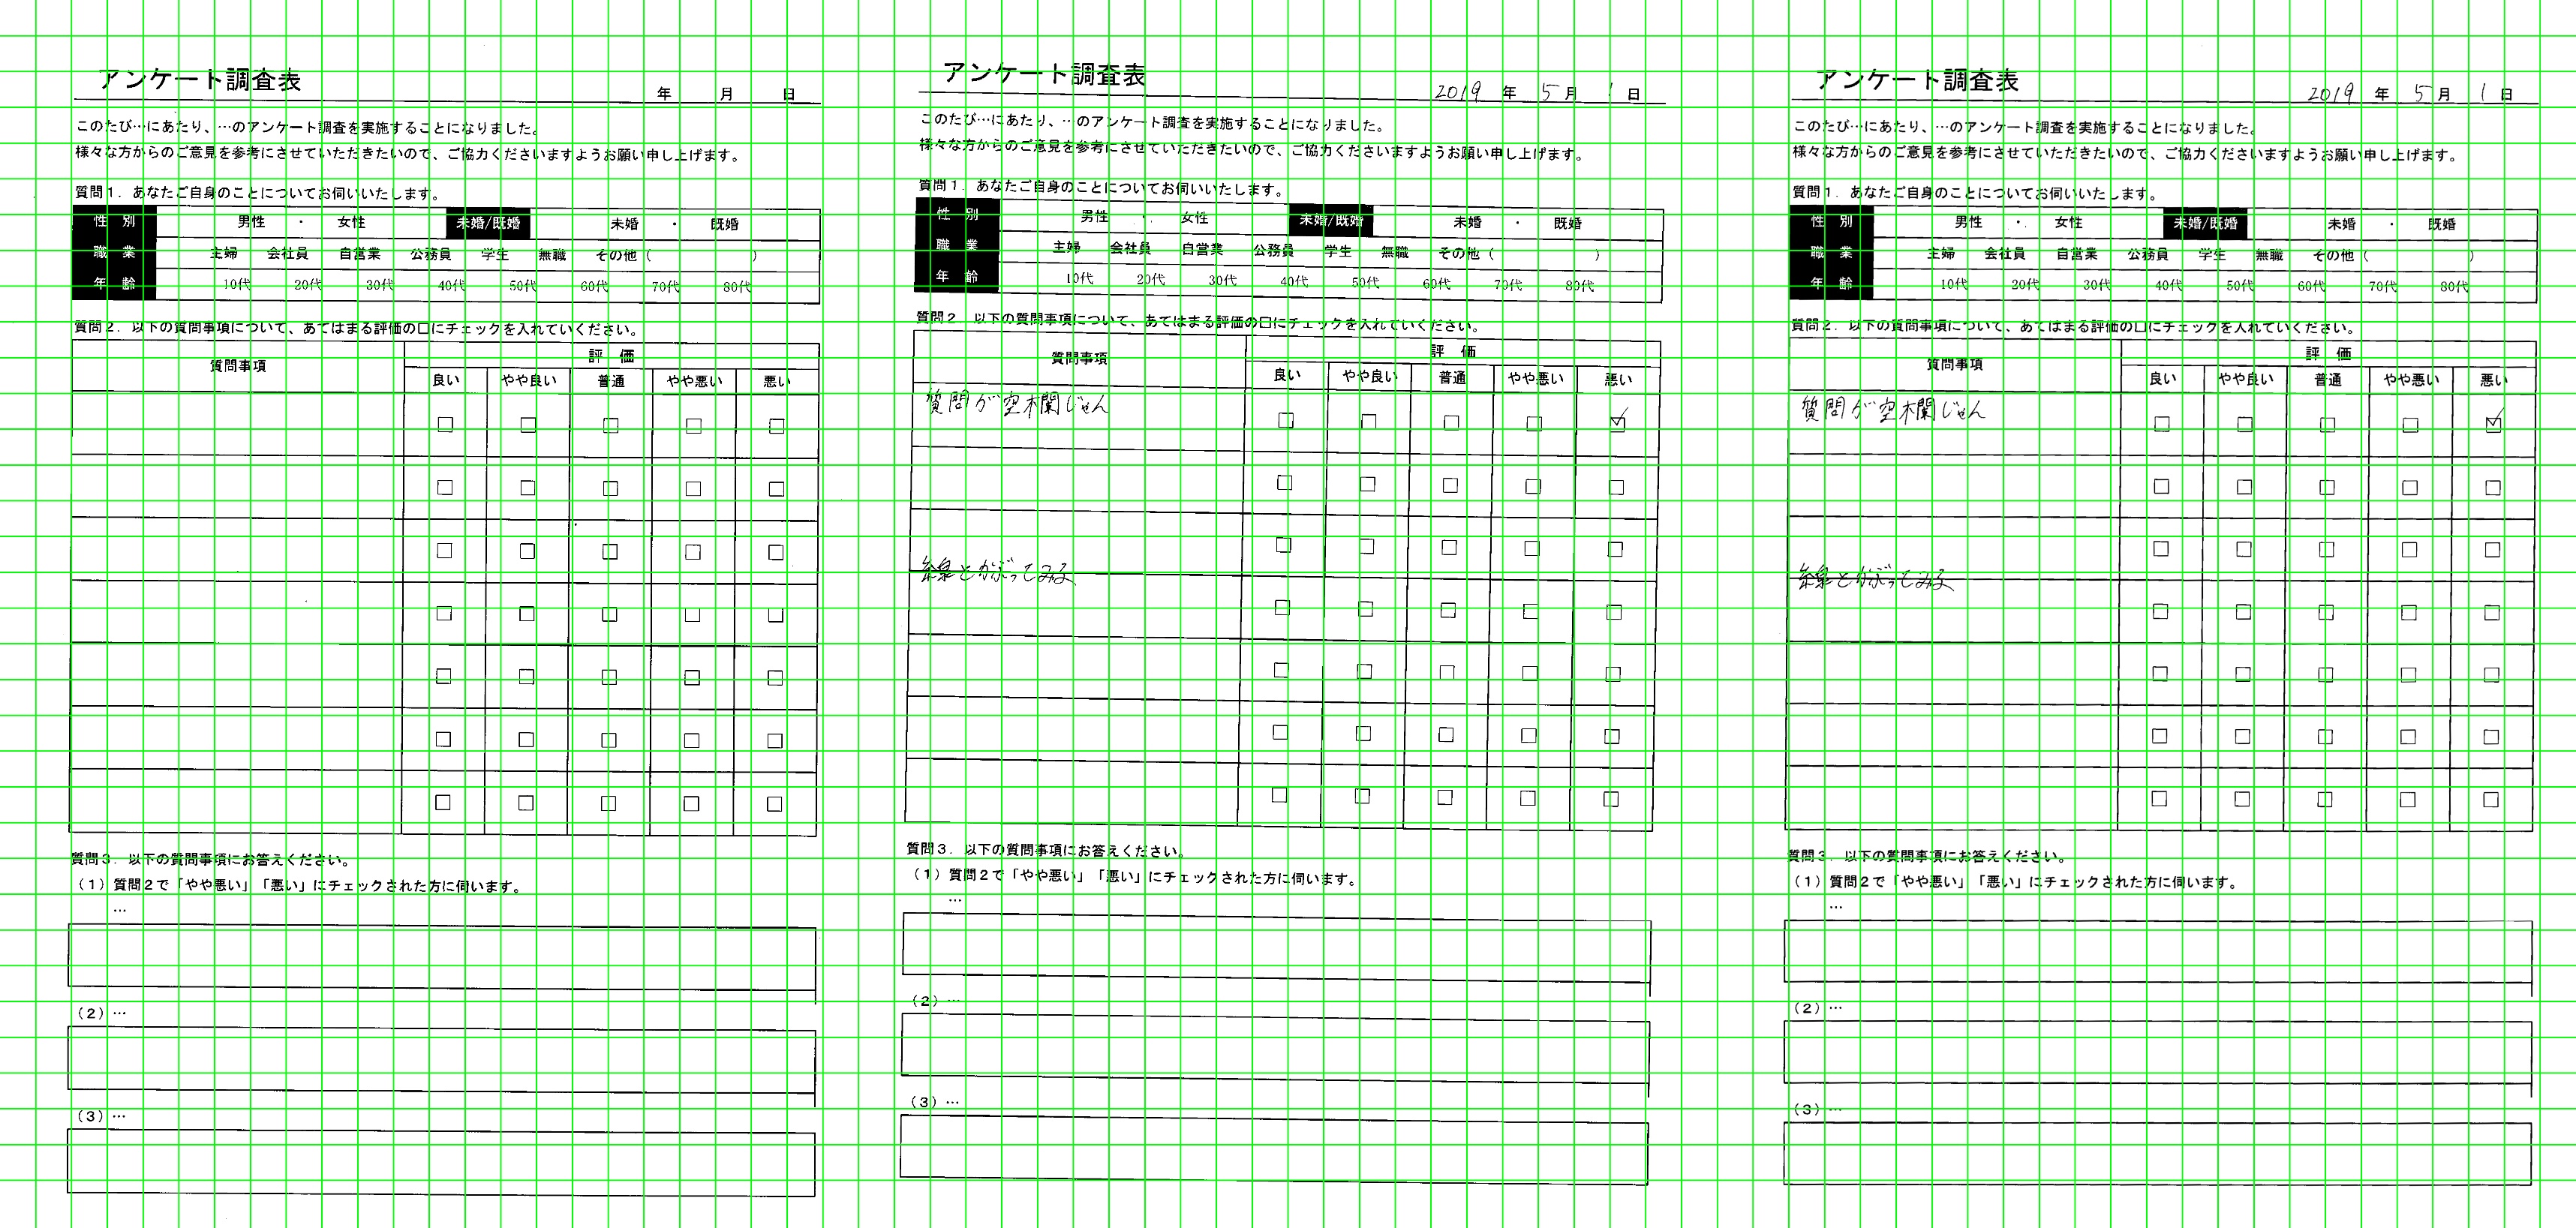 アンケート調査表
年 月 日
このたび…にあたり、…のアンケート調査を実施することになりました。
様々な方からのご意見を参考にさせていただきたいので、ご協力くださいますようお願い申し上げます。
質問1．あなたご自身のことについてお伺いいたします。
性 別 男性 ・ 女性 未婚/既婚 未婚 ・ 既婚
職 業 主婦 会社員 自営業 公務員 学生 無職 その他（ ）
年 齢 10代 20代 30代 40代 50代 60代 70代 80代
質問2．以下の質問事項について、あてはまる評価の口にチェックを入れていください。
質問事項 評 価
良い やや良い 普通 やや悪い 悪い
質問3．以下の質問事項にお答えください。
（1）質問2で「やや悪い」「悪い」にチェックされた方に伺います。
…
（2）…
（3）…
アンケート調査表
2019 年 5 月 1 日
このたび…にあたり、…のアンケート調査を実施することになりました。
様々な方からのご意見を参考にさせていただきたいので、ご協力くださいますようお願い申し上げます。
質問1．あなたご自身のことについてお伺いいたします。
性 別 男性 ・ 女性 未婚/既婚 未婚 ・ 既婚
職 業 主婦 会社員 自営業 公務員 学生 無職 その他（ ）
年 齢 10代 20代 30代 40代 50代 60代 70代 80代
質問2 以下の質問事項について、あてはまる評価の口にチェックを入れていください。
質問事項 評 価
良い やや良い 普通 やや悪い 悪い
質問が空欄じゃん
線とかぶってみる
質問3．以下の質問事項にお答えください。
（1）質問2で「やや悪い」「悪い」にチェックされた方に伺います。
…
（2）…
（3）…
アンケート調査表
2019 年 5 月 1 日
このたび…にあたり、…のアンケート調査を実施することになりました。
様々な方からのご意見を参考にさせていただきたいので、ご協力くださいますようお願い申し上げます。
質問1．あなたご自身のことについてお伺いいたします。
性 別 男性 ・ 女性 未婚/既婚 未婚 ・ 既婚
職 業 主婦 会社員 自営業 公務員 学生 無職 その他（ ）
年 齢 10代 20代 30代 40代 50代 60代 70代 80代
質問2．以下の質問事項について、あてはまる評価の口にチェックを入れていください。
質問事項 評 価
良い やや良い 普通 やや悪い 悪い
質問が空欄じゃん
線とかぶってみる
質問3．以下の質問事項にお答えください。
（1）質問2で「やや悪い」「悪い」にチェックされた方に伺います。
…
（2）…
（3）…